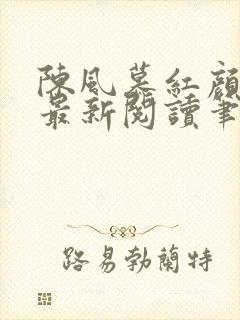 陳風墓紅顏
最新閱讀筆
路易勃蘭特